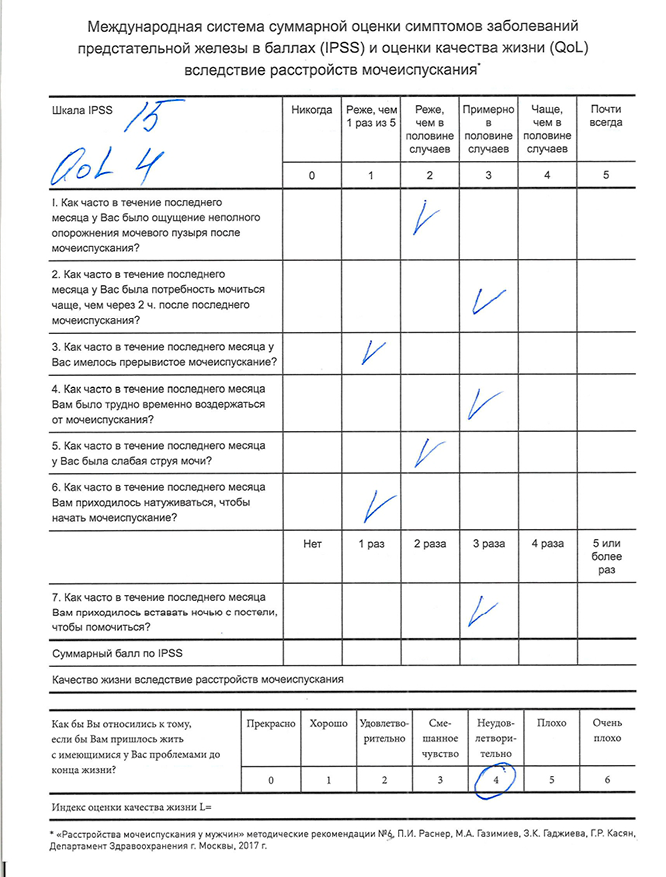 Международная система суммарной оценки симптомов заболеваний
предстательной железы в баллах (IPSS) и оценки качества жизни (QoL)
вследствие расстройств мочеиспускания*
Шкала IPSS 15
QoL 4
Никогда
Реже, чем
1 раз из 5
Реже,
чем в
половине
случаев
Примерно
в
половине
случаев
Чаще,
чем в
половине
случаев
Почти
всегда
0 1 2 3 4 5
I. Как часто в течение последнего
месяца у Вас было ощущение неполного
опорожнения мочевого пузыря после
мочеиспускания?
2. Как часто в течение последнего
месяца у Вас была потребность мочиться
чаще, чем через 2 ч. после последнего
мочеиспускания?
3. Как часто в течение последнего месяца у
Вас имелось прерывистое мочеиспускание?
4. Как часто в течение последнего месяца
Вам было трудно временно воздержаться
от мочеиспускания?
5. Как часто в течение последнего месяца
у Вас была слабая струя мочи?
6. Как часто в течение последнего месяца
Вам приходилось натуживаться, чтобы
начать мочеиспускание?
Нет
1 раз
2 раза
3 раза
4 раза
5 или
более
раз
7. Как часто в течение последнего месяца
Вам приходилось вставать ночью с постели,
чтобы помочиться?
Суммарный балл по IPSS
Качество жизни вследствие расстройств мочеиспускания
Как бы Вы относились к тому,
если бы Вам пришлось жить
с имеющимися у Вас проблемами до
конца жизни?
Прекрасно
Хорошо
Удовлетво-
рительно
Сме-
шанное
чувство
Неудов-
летвори-
тельно
Плохо
Очень
плохо
0 1 2 3 4 5 6
Индекс оценки качества жизни L=
* «Расстройства мочеиспускания у мужчин» методические рекомендации №6, П.И. Раснер, М.А. Газимиев, З.К. Гаджиева, Г.Р. Касян,
Департамент Здравоохранения г. Москвы, 2017 г.